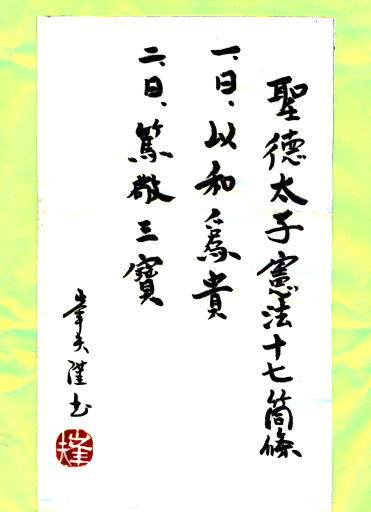 聖德太子憲法十七箇條
一、曰、以和爲貴
二、曰、篤敬三寶